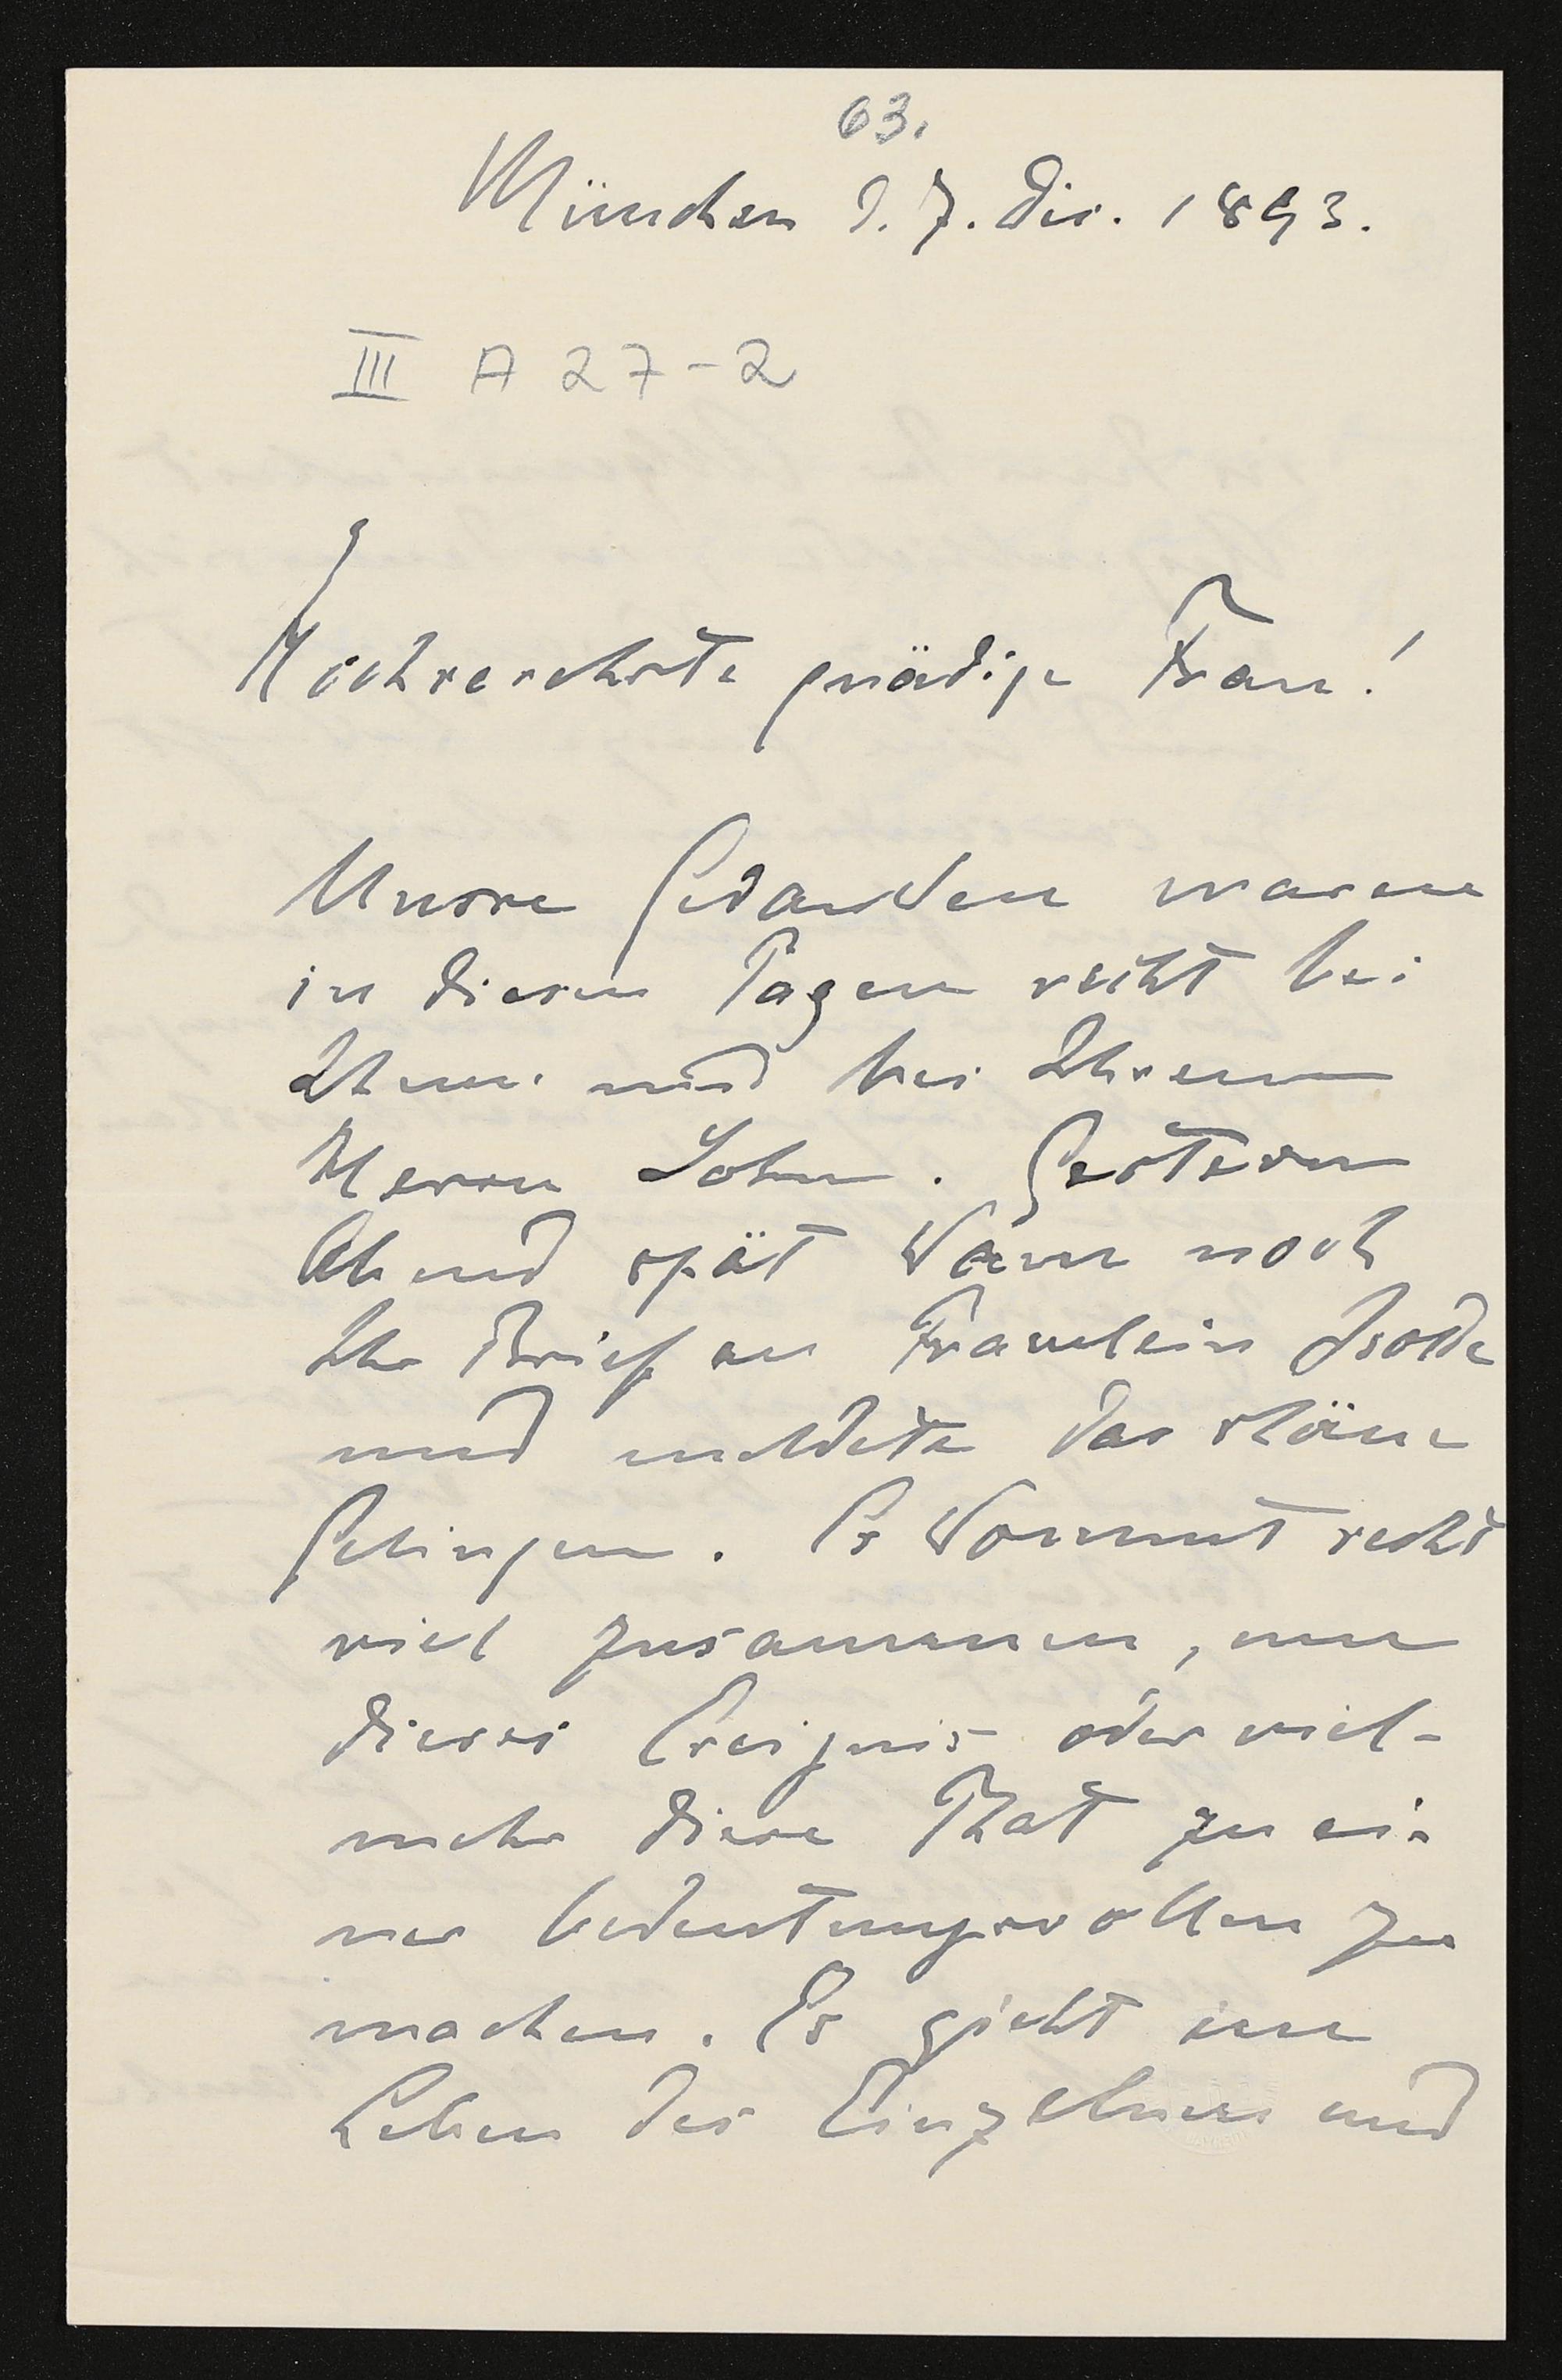 63.
München d. 7. Dec. 1893.
III A 27-2
Hochverehrte gnädige Frau!
Unsre Gedanken waren
in diesen Tagen recht bei
Ihnen und bei Ihrem
Herrn Sohn. Gestern
Abend spät kam noch
Ihr Brief an Fräulein Isolde
und meldete das schöne
Gelingen. Es kommt recht
viel zusammen, um
dieses Ereignis oder viel-
mehr diese That zu ei-
ner bedeutungsvollen zu
machen. Es giebt im
Leben des Einzelnen und